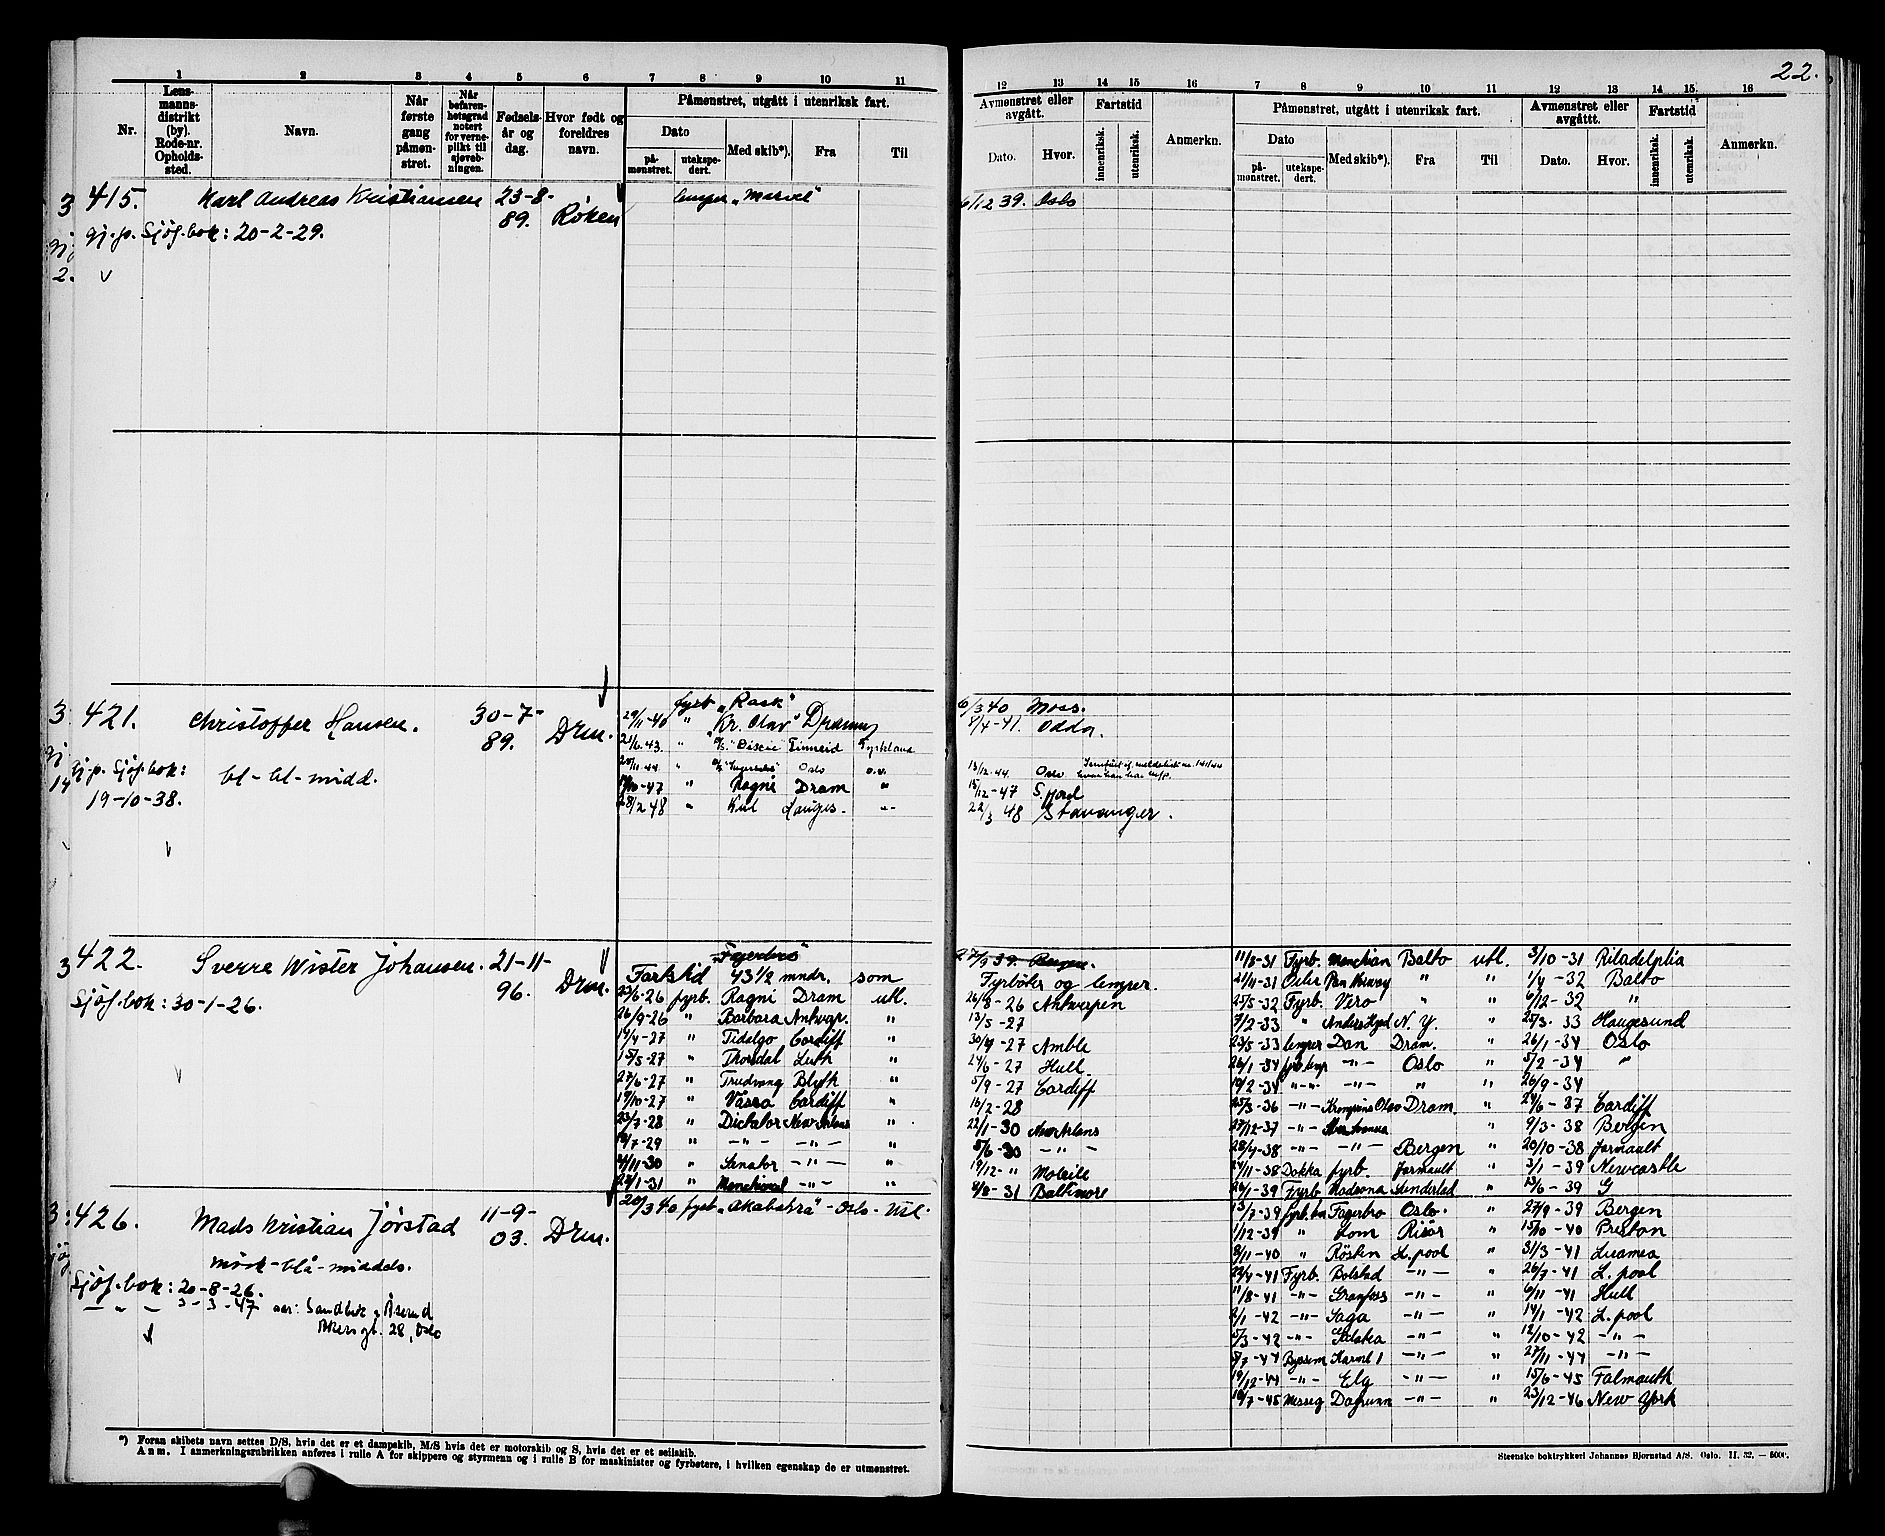 22.
1 2 3 4 5 6 7 8 9 10 11
Lensmannsdistrikt (by). Rode-nr. Opholdssted.
Nr.
Navn.
Når første gang påmønstret.
Når befarenhetsgrad notert for verneplikt til sjøvebningen.
Fødselsår og dag.
Hvor født og foreldres navn.
Påmønstret, utgått i utenriksk fart.
Dato
påmønstret. utekspedert.
Med skib*).
Fra
Til
12 13 14 15 16 7 8 9 10 11 12 13 14 15 16
Avmønstret eller avgått.
Dato. Hvor.
Fartstid
innenriksk. utenriksk.
Anmerkn.
Påmønstret, utgått i utenriksk fart.
Dato
påmønstret. utekspedert.
Med skib*).
Fra
Til
Avmønstret eller avgått.
Dato. Hvor.
Fartstid
innenriksk. utenriksk.
Anmerkn.
3 415. Karl Andreas Kristiansen 23-8-89. Røken lemper 6/12 39. Oslo
gj.p. Sjøf.bok: 20-2-29.
3 421. Christoffer Hansen. 30-7-89. Drm. fyrb „Rask" 6/3 40 Moss.
29/11-40 " Kr. Olav" Dramm 8/4-41. Odda.
21/6.43. "
gj.p. Sjøf.bok: 19-10-38.
bl-bl-midd.
20/11.44 " Oslo 13/12.44. Oslo
-47 " Ragni Dram " 15/12-47
28/2 48 " Hauges. -"- 22/3 48 Stavanger.
3 422. Sverre Wister Johansen. 21-11-96. Drm. Fagerbro 27/9 39. Bergen.
Sjøf.bok: 30-1-26.
Fartstid 43 1/2 mndr. som Fyrbøter og lemper.
23/6-26 fyrb. Ragni Dram utl. 26/8-26 Antwerpen
26/9-26 " Barbara Antwp. " 13/5-27
19/4-27 " Tidalgo Cardiff " 30/4-27 Amble
15/5-27 " Thordal " 24/6-27 Hull
27/6-27 " Trudvang Blyth " 5/9-27 Cardiff
19/10-27 " Vasra Cardiff " 16/2-28
23/7-28 " Dictator New Orleans " 22/1-30 New Orleans
19/7-29 " -"- -"- " 5/6-30 -"-
4/11-30 " Senator -"- " 19/12-" Mobile
22/1-31 " -"- " 8/8-31 Baltimore
11/8-31 Fyrb. Balto utl. 3/10-31 Filadelphia
21/11-31 Oiler Pan Norway " " 1/4-32 Balto
25/5-32 Fyrb. Vero " " 6/12-32 "
7/2-33 " N. Y. " 25/3-33 Haugesund
23/5-33 lemper Dan Dram. " 26/1-34 Oslo
26/1-34 -"- Oslo " 5/2-34 "
19/2-34 -"- -"- " " 26/9-34
25/3-36 -"- Kronprins Olav Dram. " 24/6-37 Cardiff
27/12-37 -"- 9/3-38 Bergen
28/4-38 -"- -"- Bergen " 20/10-38
24/11-38 Dokka fyrb. " 3/1-39 Newcastle
26/1-39 Fyrb " 13/6-39 G
13/7-39 Fagerbro Oslo. " 27/9-39 Bergen
1/12-39 " Lom Risør " 15/10-40 Preston
8/11-40 " Røsten L.pool " 31/3-41
22/4-41 Fyrb. Bolstad -"- " 26/7-41 L.pool
11/8-41 -"- Granfoss -"- " 6/11-41 Hull
2/1-42 -"- Saga -"- " 14/1-42 L.pool
5/3-42 -"- -"- " 12/10-42 -"-
8/7-44 Byssem Karmt 1 -"- " 27/11-44 -"-
19/12-44 -"- Elg -"- " 15/6-45 Falmouth
10/7-45 Messeg Dagrunn -"- " 23/12-46 New York
3: 426. Mads Kristian Jørstad 11-9-03. Drm. 20/3 40 fyrb „Akabahra" - Oslo - Utl.
mørk-blå-middels.
Sjøf.bok: 20-8-26.
- " - 3-3-47
28, Oslo
*) Foran skibets navn settes D/S, hvis det er et dampskib, M/S hvis det er motorskib og S, hvis det er et seilskib.
Anm. I anmerkningsrubrikken anføres i rulle A for skippere og styrmenn og i rulle B for maskinister og fyrbøtere, i hvilken egenskap de er utmønstret.
Steenske boktrykkeri Johannes Bjørnstad A/S. Oslo. 11. 32. — 5000.